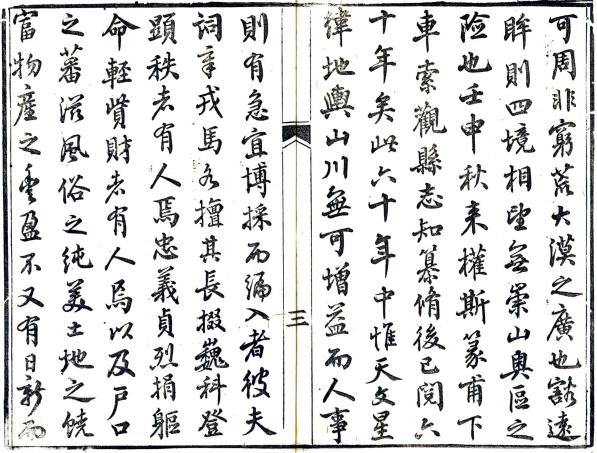 可周非窮荒大漠之廣也豁遠
眸則四境相望無崇山奧區之
險也壬申秋来權斯篆甫下
車索觀縣志知纂脩後已閱六
十年矣此六十年中惟天文星
緯地輿山川無可增益而人事
三
則有急宜博採而編入者彼夫
詞章戎馬各擅其長掇巍科登
顕秩者有人焉忠義貞烈捐軀
命輕貲財者有人焉以及戸口
之蕃滋風俗之純美土地之饒
富物產之豊盈不又有日新而